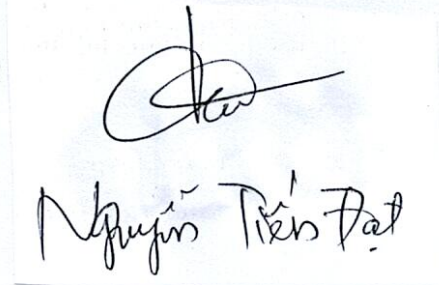 Nguyễn Tiến Đạt